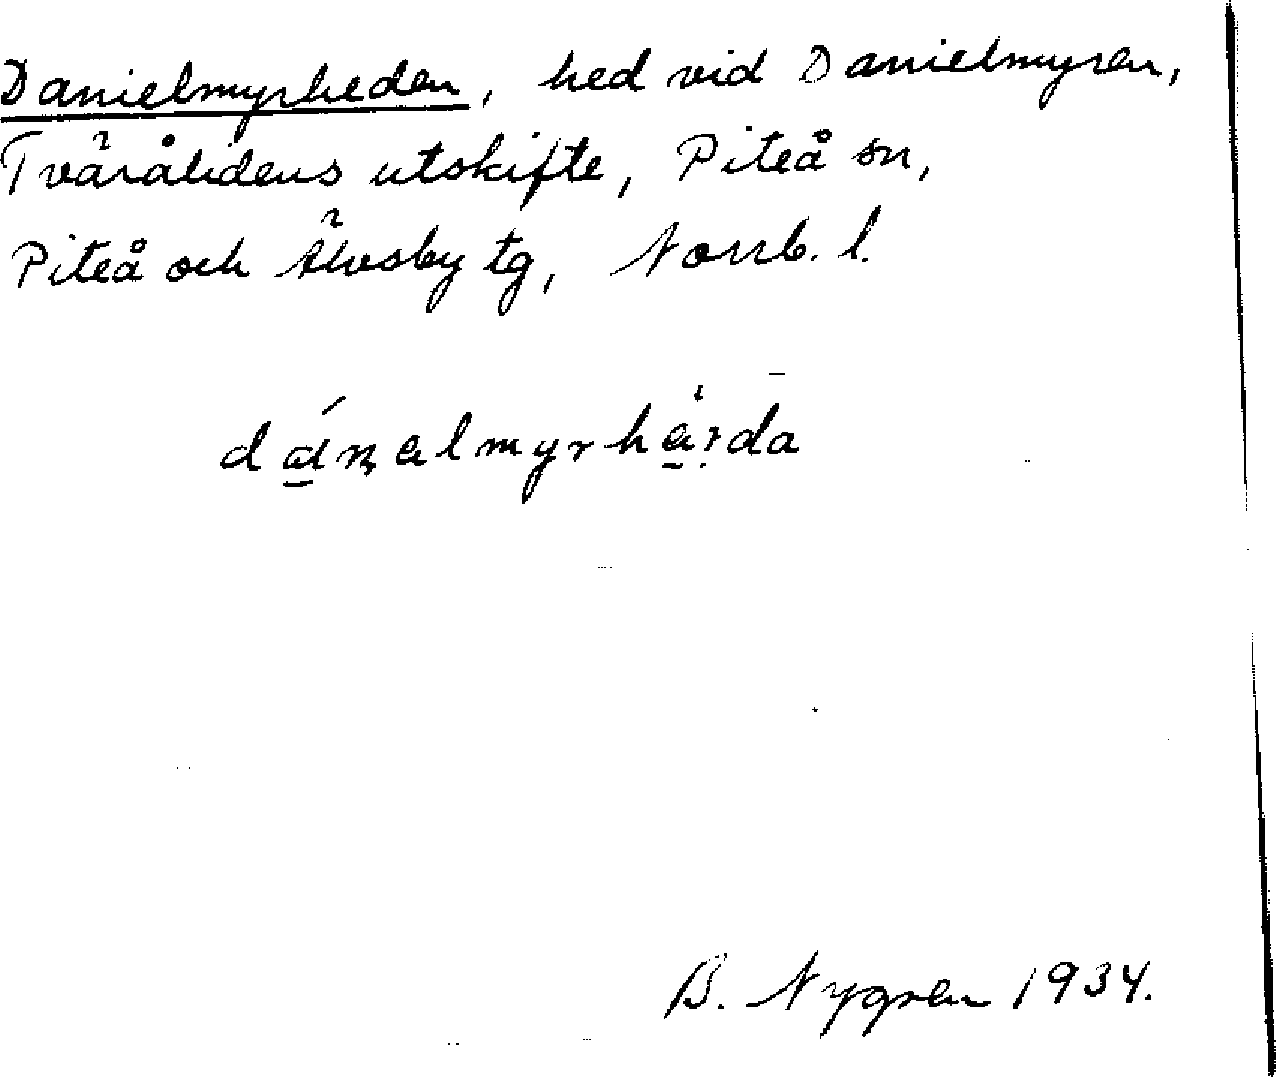 Danielmyrheden, hed vid Danielmyren,
Tväråлidens utskifte, Piteå sn,
Piteå och Älvsby tg, Norrb. l.
B. Nygren 1934.